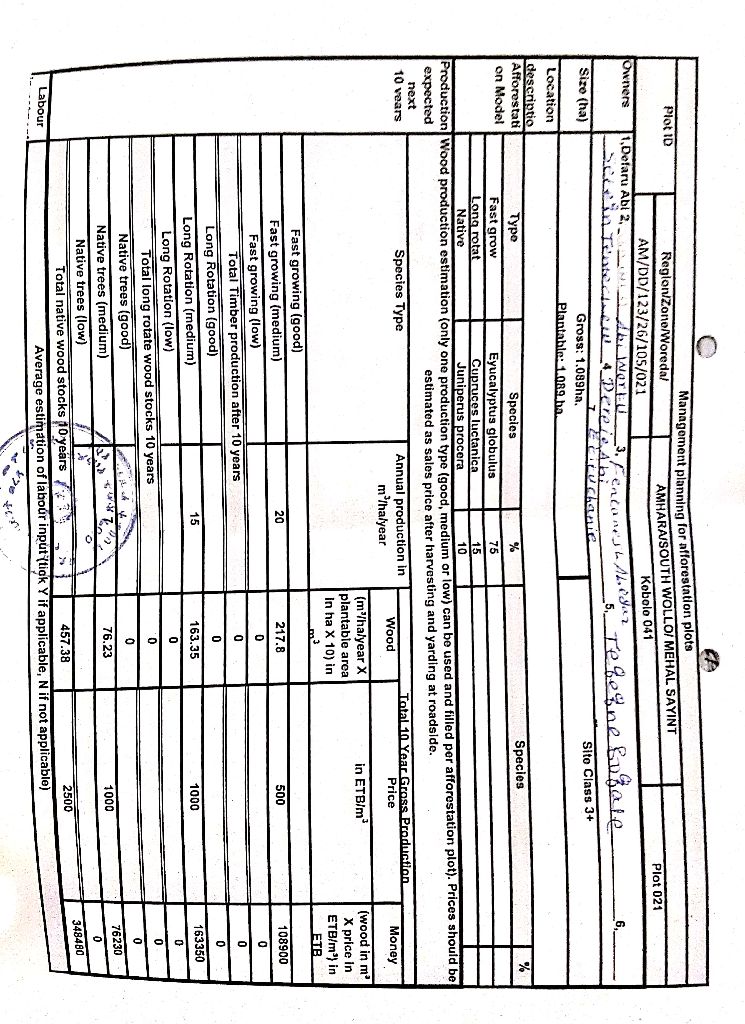 Management planning for afforestation plots
Plot ID
Region/Zone/Woreda/ AMHARA/SOUTH WOLLO/ MEHAL SAYINT Plot 021
AM/DD/123/26/105/021 Kebele 041
Owners 1,Defaru Abi 2, Abi Worku 3, 
4 Dereje Abi 5, Tegegne 6,
7
Size (ha) Gross: 1.089ha. Site Class 3+
Plantable: 1.089 ha
Location
descriptio
Afforestati
on Model
Type Species % Species %
Fast grow Eyucalyptus globulus 75
Long rotat Cupruces luctanica 15
Native Juniperus procera 10
Production
expected
next
10 years
Wood production estimation (only one production type (good, medium or low) can be used and filled per afforestation plot). Prices should be
estimated as sales price after harvesting and yarding at roadside.
Species Type Annual production in
m³/ha/year
Total 10 Year Gross Production
Wood Price Money
(m³/ha/year X
plantable area
in ha X 10) in
m³
in ETB/m³
(wood in m³
X price in
ETB/m³) in
ETB
Fast growing (good)
Fast growing (medium) 20 217.8 500 108900
Fast growing (low) 0 0
Total Timber production after 10 years 0 0
Long Rotation (good) 0 0
Long Rotation (medium) 15 163.35 1000 163350
Long Rotation (low) 0 0
Total long rotate wood stocks 10 years 0 0
Native trees (good) 0 0
Native trees (medium) 76.23 1000 76230
Native trees (low) 0
Total native wood stocks 10 years 457.38 2500 348480
Labour Average estimation of labour input (tick Y if applicable, N if not applicable)